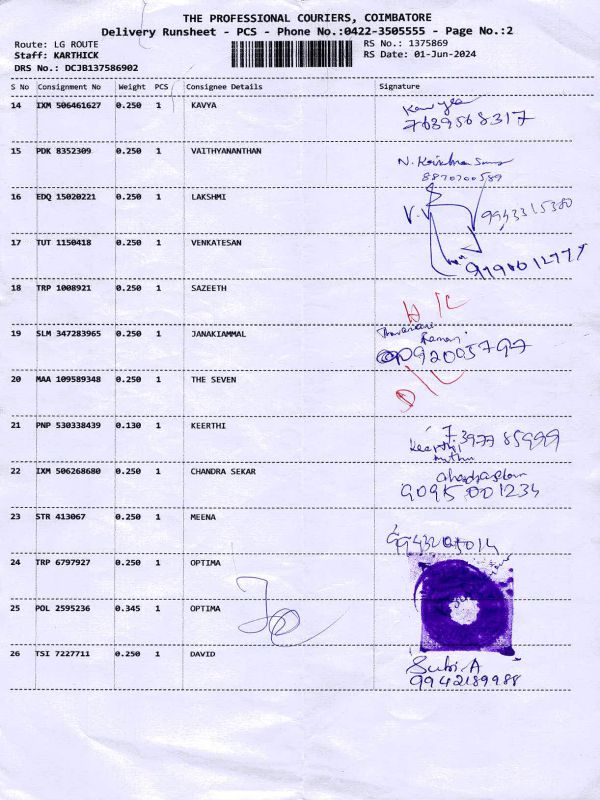 THE PROFESSIONAL COURIERS, COIMBATORE
Delivery Runsheet - PCS - Phone No.:0422-3505555 - Page No.:2
Route: LG ROUTE
RS No.: 1375869
Staff: KARTHICK
RS Date: 01-Jun-2024
DRS No.: DCJB137586902
S No Consignment No Weight PCS Consignee Details Signature
14 IXM 506461627 0.250 1 KAVYA Kavya
7639568317
15 PDK 8352309 0.250 1 VAITHYANANTHAN N.
8870700589
16 EDQ 15020221 0.250 1 LAKSHMI V.V 9943315380
17 TUT 1150418 0.250 1 VENKATESAN
18 TRP 1008921 0.250 1 SAZEETH
19 SLM 347283965 0.250 1 JANAKIAMMAL
092005797
20 MAA 109589348 0.250 1 THE SEVEN D/L
21 PNP 530338439 0.130 1 KEERTHI 7397785999
Keerthi
22 IXM 506268680 0.250 1 CHANDRA SEKAR
9095 001234
23 STR 413067 0.250 1 MEENA
9943205014
24 TRP 6797927 0.250 1 OPTIMA
25 POL 2595236 0.345 1 OPTIMA
26 TSI 7227711 0.250 1 DAVID Subi.A
9942189988